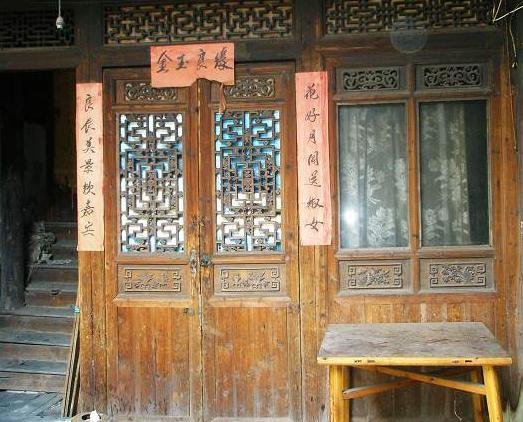 金玉良缘
花好月圆送淑女
良辰美景款嘉宾